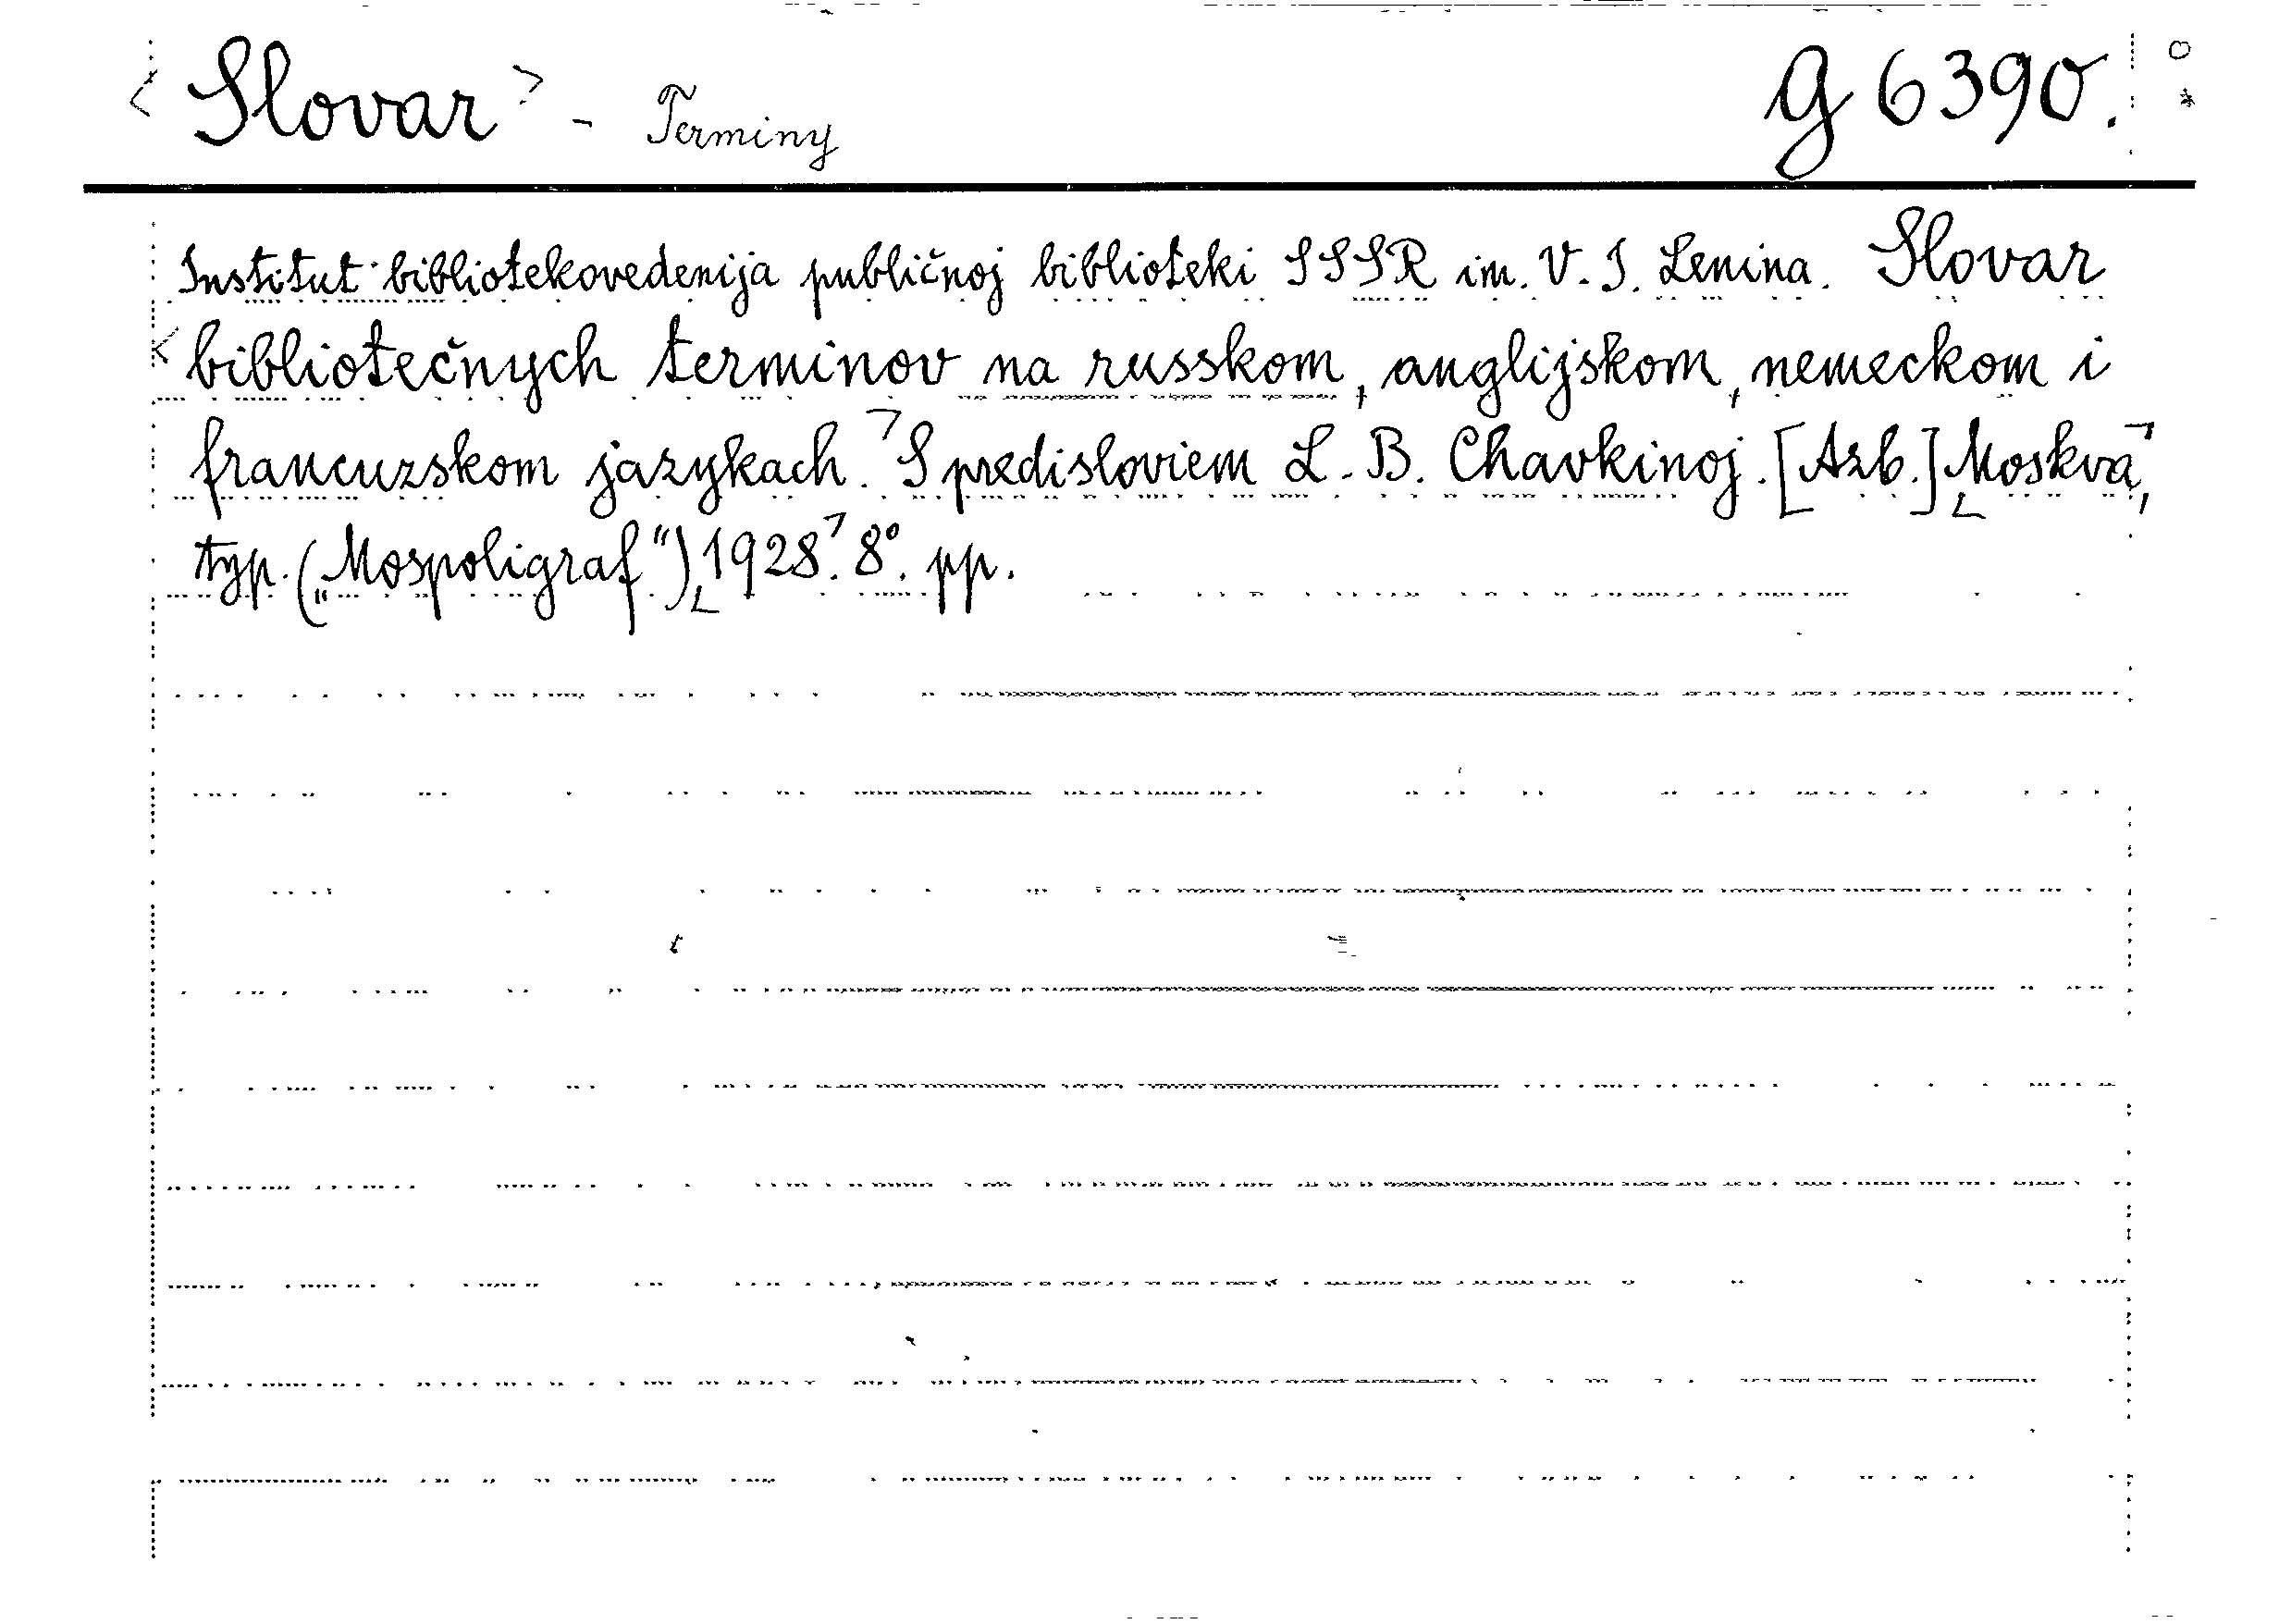 <Slovar> - Terminy g 6390.
Institut bibliotekovedenija publičnoj biblioteki SSSR im. V. I. Lenina. Slovar
bibliotečnych terminov na russkom, anglijskom, nemeckom i
francuzskom jazykach. S predisloviem L. B. Chavkinoj. [Azb.] Moskva,
typ. („Mospoligraf“) 1928. 8°. pp.